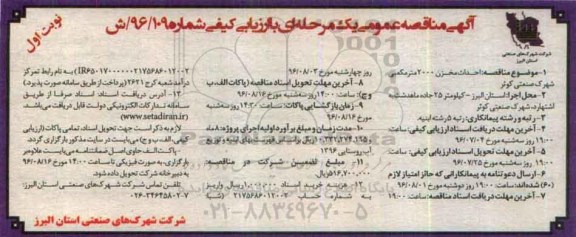 آگهی مناقصه عمومی یک مرحله‌ای با ارزیابی کیفی شماره ۹۶/۱۰۹/ش
نوبت اول
شرکت شهرک‌های صنعتی
استان البرز
۱- موضوع مناقصه: احداث مخزن ۲۰۰۰ مترمکعبی شهرک صنعتی کوثر
۲- محل اجرا: استان البرز - کیلومتر ۲۵ جاده ماهدشت به اشتهارد، شهرک صنعتی کوثر
۳- رتبه و رشته پیمانکاری: رتبه ۵ رشته ابنیه.
۴- آخرین مهلت دریافت اسناد ارزیابی کیفی: ساعت ۱۹:۰۰ روز سه‌شنبه مورخ ۹۶/۰۷/۰۴
۵- آخرین مهلت تحویل اسناد ارزیابی کیفی: ساعت ۱۹:۰۰ روز سه‌شنبه مورخ ۹۶/۰۷/۲۵
۶- ارسال دعوتنامه به پیمانکارانی که حائز امتیاز لازم (۶۰) شده‌اند: ساعت ۱۹:۰۰ روز دوشنبه مورخ ۹۶/۰۸/۰۱
۷- آخرین مهلت دریافت اسناد مناقصه: ساعت ۱۹:۰۰
روز چهارشنبه مورخ ۹۶/۰۸/۰۳
۸- آخرین مهلت تحویل اسناد مناقصه (پاکات الف، ب و ج): ساعت ۱۴:۰۰ روز سه‌شنبه مورخ ۹۶/۰۸/۱۶
۹- زمان بازگشایی پاکات: ساعت ۱۴:۳۰ روز سه‌شنبه مورخ ۹۶/۰۸/۱۶
۱۰- مدت زمان و مبلغ برآورد اولیه اجرای پروژه:
آب روستایی ۱۳۹۶
۱۱- مبلغ تضمین شرکت در مناقصه: ۵۱۶.۷۰۰.۰۰۰ ریال
۱۲- هزینه خرید اسناد ۱.۰۰۰.۰۰۰ ریال واریز به شماره حساب ۲۱۷۵۶۸۶۰۱۲۰۰۲ (شبا
IR650170000000217568601002) به نام رابط تمرکز درآمد شعبه کرج ۲۶۲۱ (پرداخت از طریق سامانه صورت پذیرد)
۱۳- آدرس دریافت اسناد: اسناد صرفا از طریق سامانه تدارکات الکترونیکی دولت قابل دریافت می‌باشد. (www.setadiran.ir)
لازم به ذکر است جهت تحویل اسناد تمامی پاکات (ارزیابی کیفی، الف، ب و ج) می‌بایست در سایت مذکور بارگزاری گردد.
- پاکت الف حاوی اصل ضمانتنامه می‌بایست علاوه بر بارگزاری، به صورت فیزیکی تا ساعت ۱۴:۰۰ مورخ ۹۶/۰۸/۱۶ به دبیرخانه شرکت تحویل داده شود.
تلفن تماس شرکت شهرک‌های صنعتی استان البرز: ۰۲۶-۳۴۶۴۵۸۰۲-۷
شرکت شهرک های صنعتی استان البرز
۰۲۱-۸۸۳۴۹۶۷۰-۵